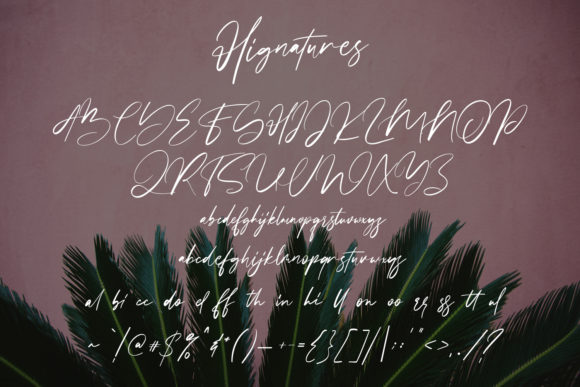 Hignatures
ABCDEFGHIJKLMNOP
QRTSUVWXYZ
abcdefghijklmnopqrstuvwxyz
abcdefghijklmnopqrstuvwxyz
al bi cc do el ff th in hi ll on oo rr ss tt ul
~ `!@#$%^&*()_-+={}[]|\:;'"<>,./?